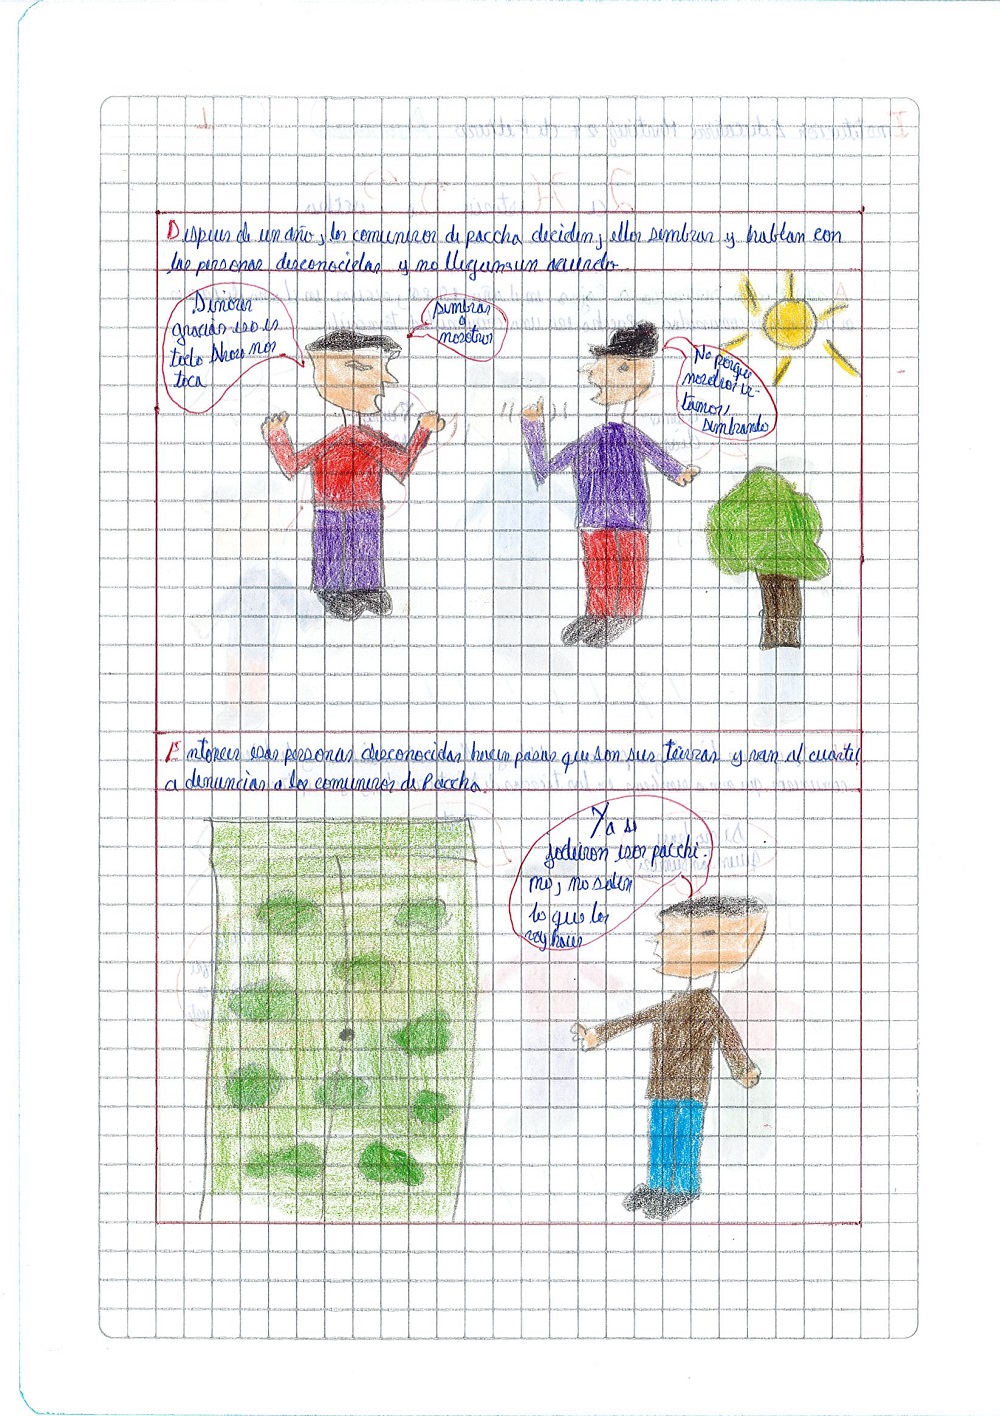 Despues de un año, los comuneros de paccha deciden, ellos sembrar y hablan con
las personas desconocidas y no llegan a un acuerdo.
Señores
gracias eso es
todo Ahora nos
toca
sembrar
a
nosotros
No porque
nosotros es-
tamos,
sembrando
Entonces esas personas desconocidas hacen pasar que son sus tierras y van al cuartel
a denunciar a los comuneros de Paccha.
Ya se
jodieron esos pacchi-
no, no saben
lo que los
voy hacer